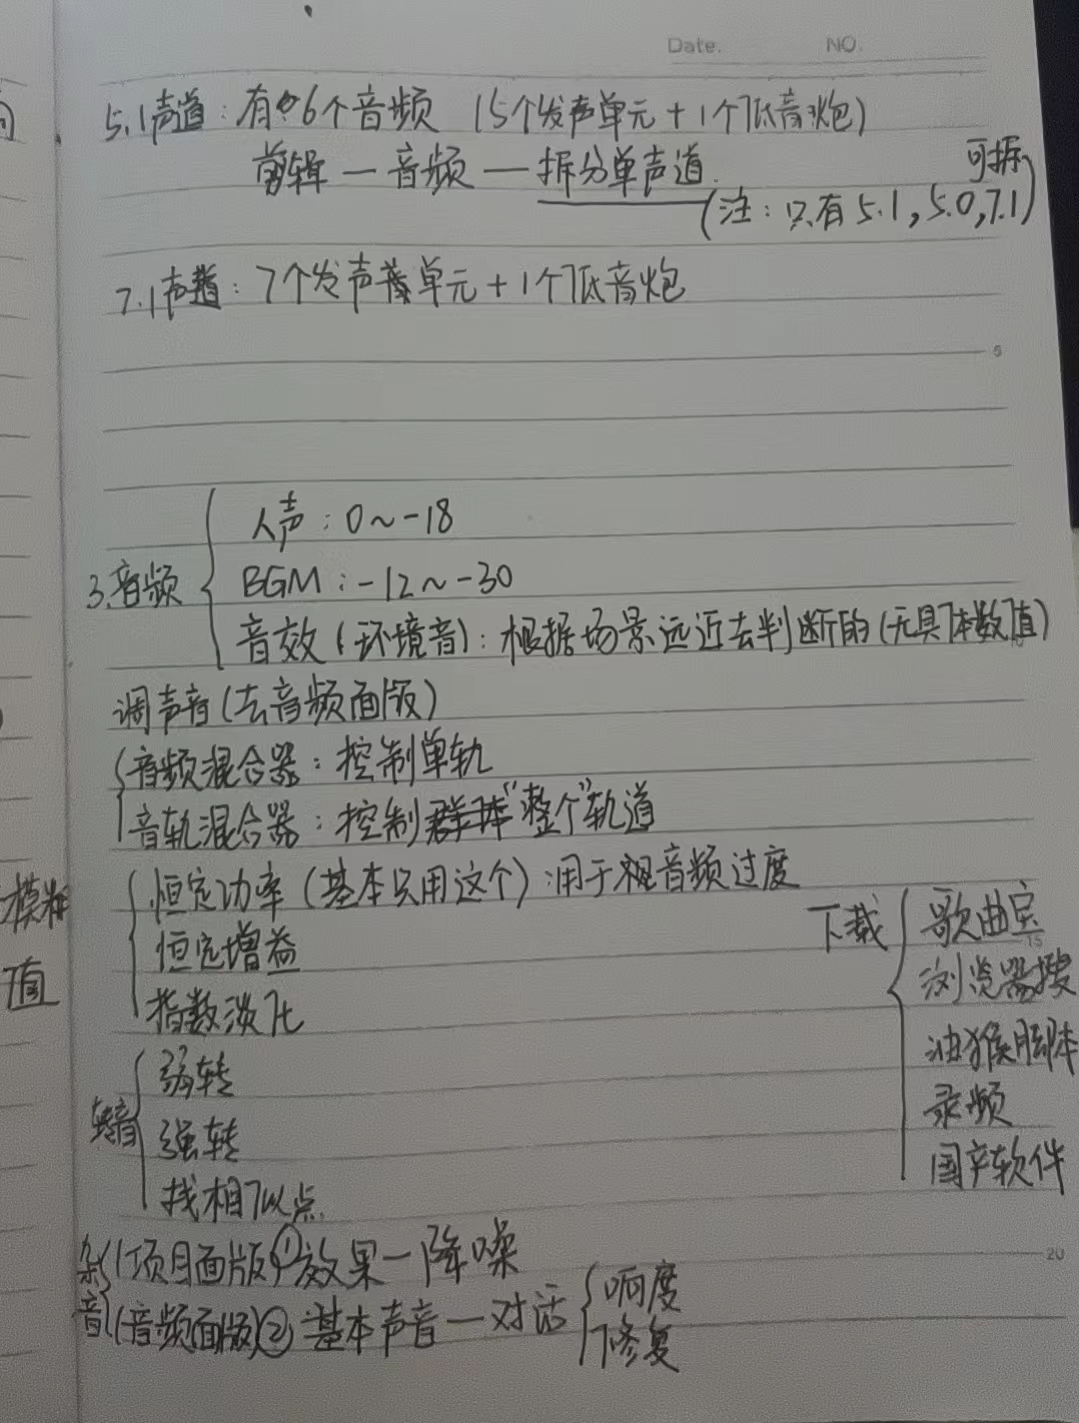 Date.  NO.
5.1声道：有6个音频（5个发声单元+1个低音炮）
剪辑—音频—拆分单声道
（注：只有5.1，5.0，7.1可拆）
7.1声道：7个发声单元+1个低音炮
5
3.音频
人声：0～-18
BGM：-12～-30
音效（环境音）：根据场景远近去判断的（无具体数值）
调声音（去音频面版）
音频混合器：控制单轨
音轨混合器：控制"整个"轨道
恒定功率（基本只用这个）：用于视音频过度
恒定增益
指数淡化
下载
歌曲宝
浏览器搜
油猴脚本
录频
国产软件
15
转音
弱转
强转
找相似点
杂音
（项目面版）①效果—降噪
（音频面版）②基本声音—对话
响度
修复
20
模糊
值